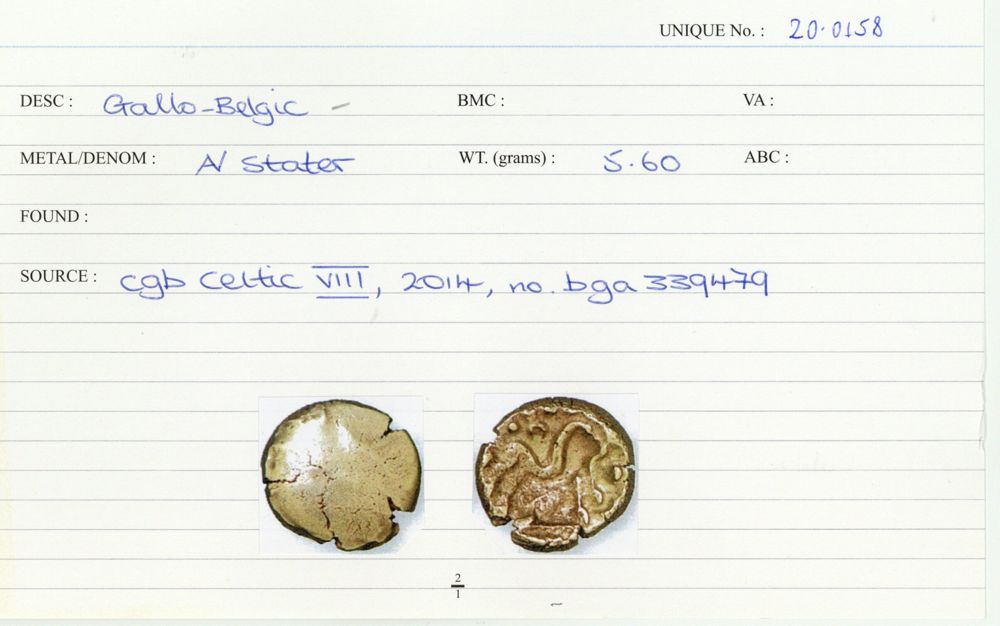 UNIQUE No. : 20.0158
DESC : Gallo-Belgic - BMC : VA :
METAL/DENOM : A/ Stater WT. (grams) : 5.60 ABC :
FOUND :
SOURCE : cgb Celtic VIII, 2014, no. bga 339479
2
1